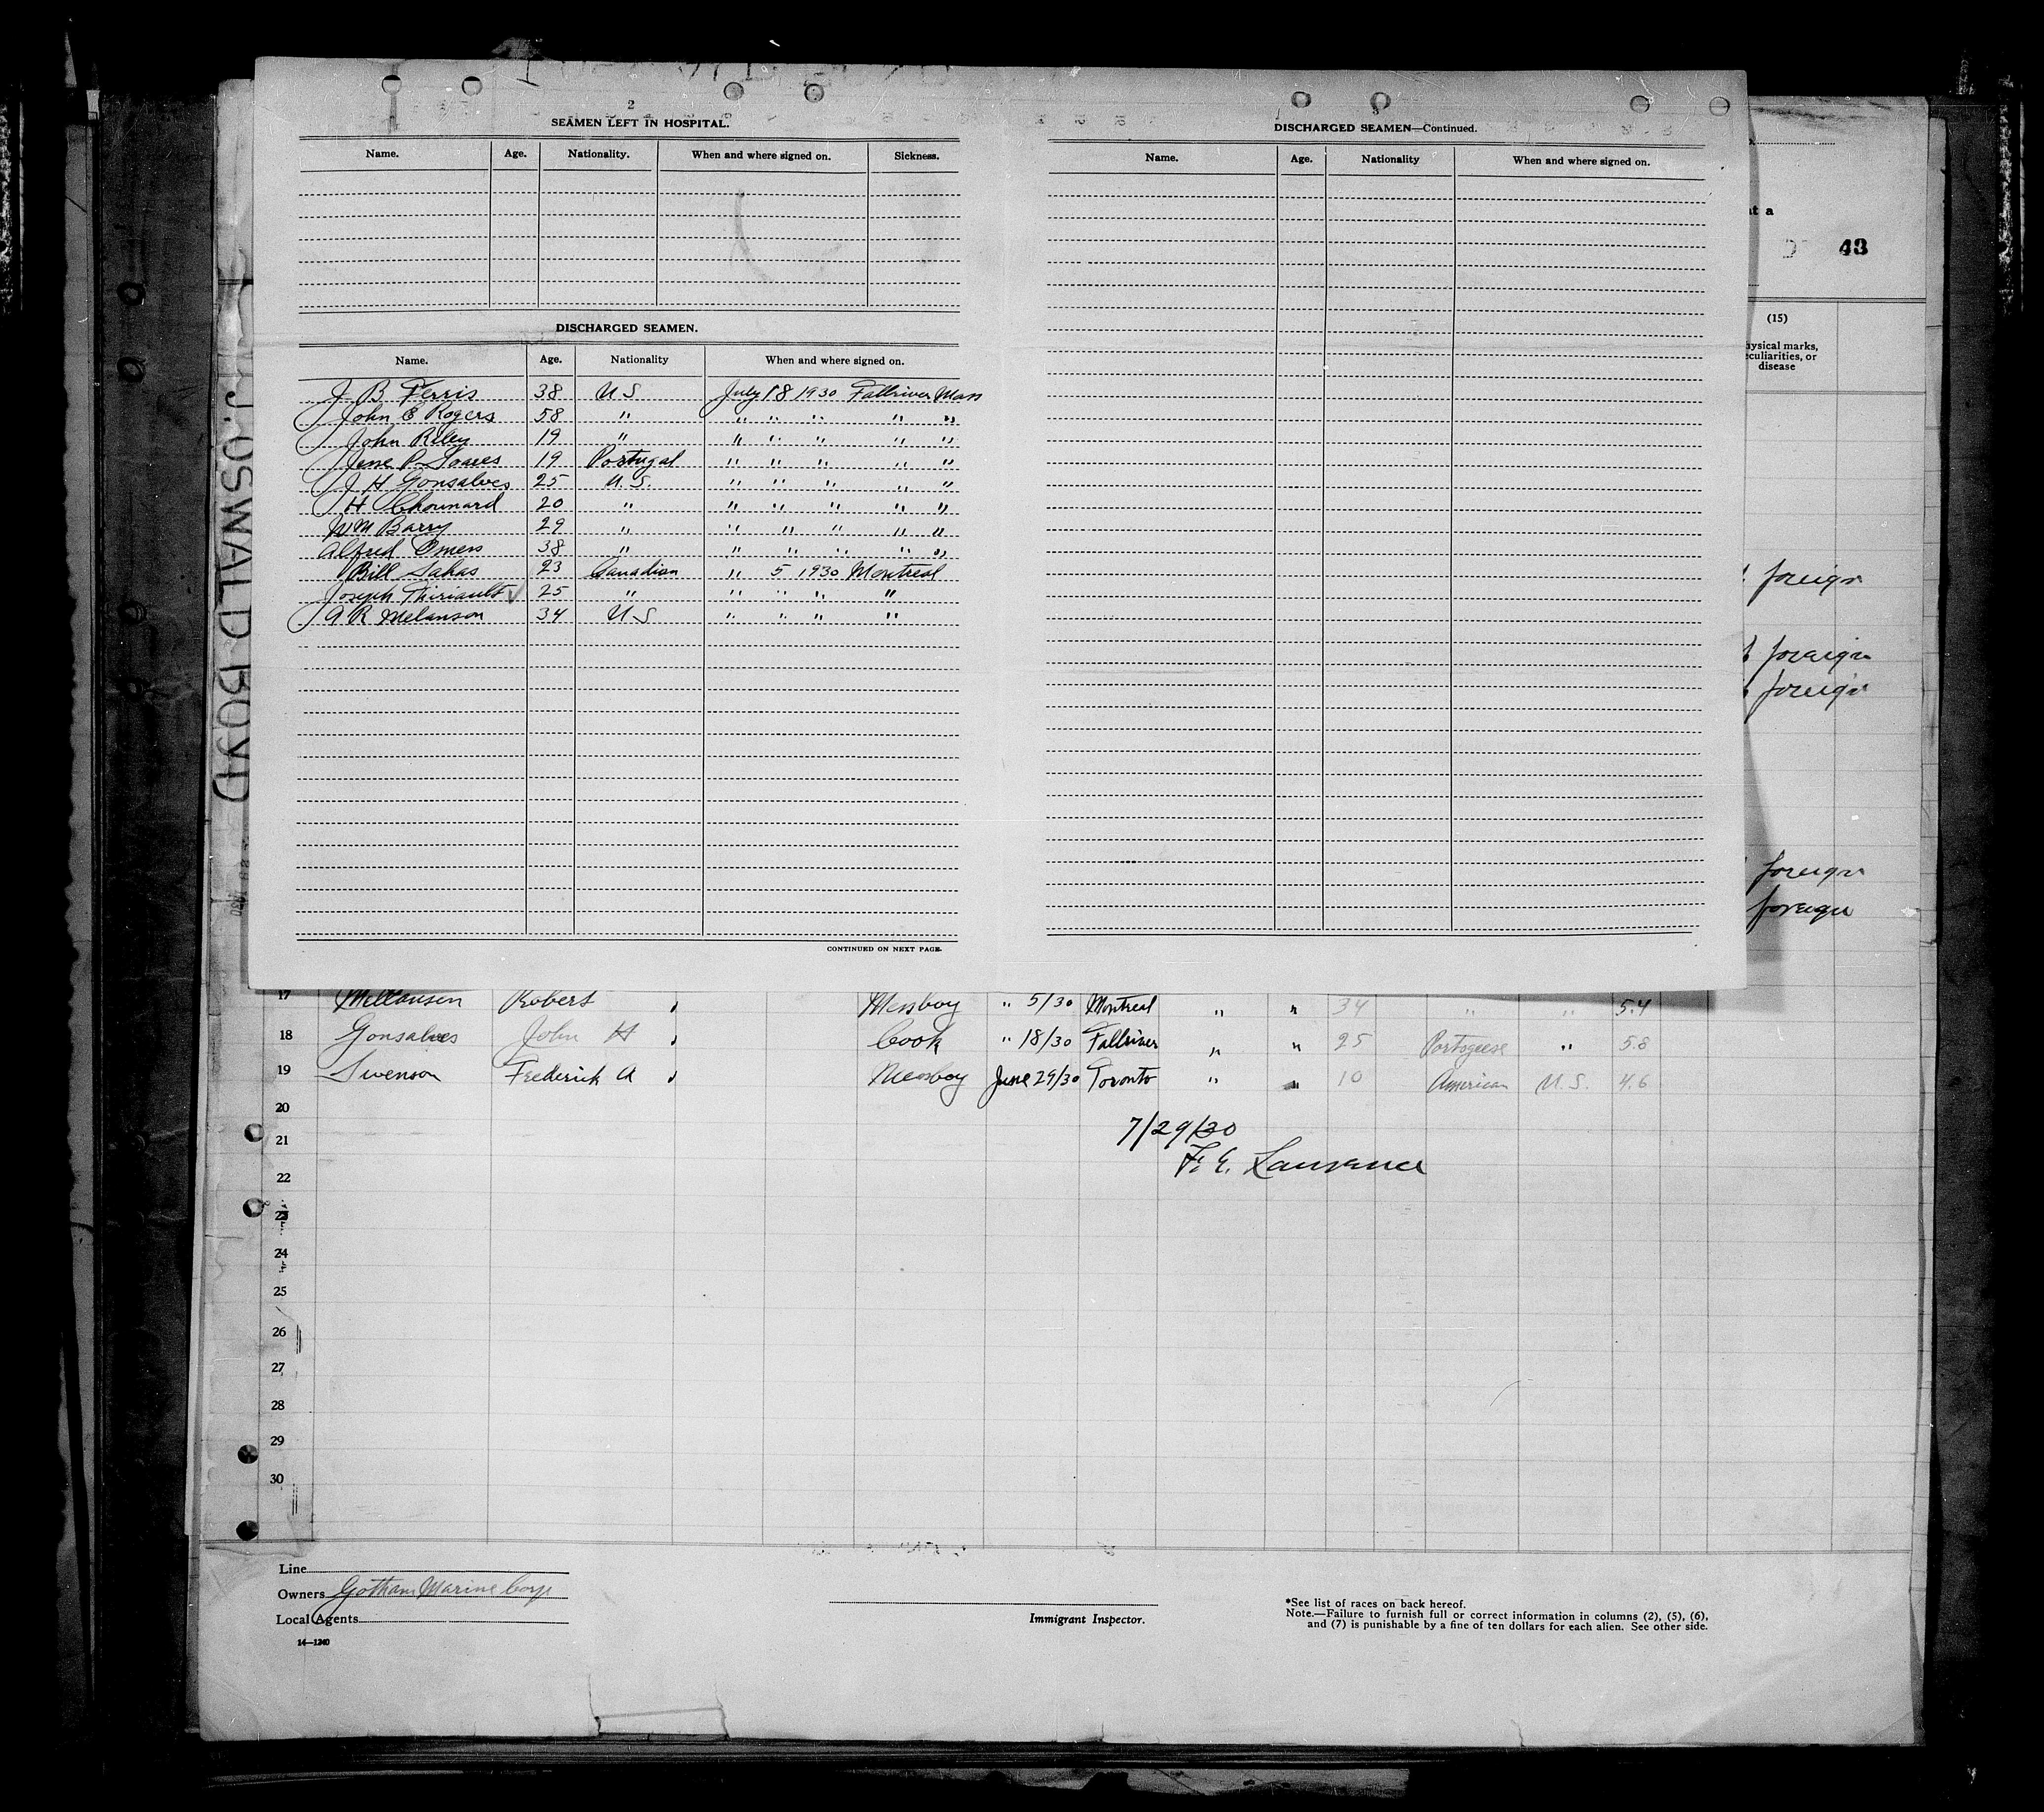 2
SEAMEN LEFT IN HOSPITAL.
Name. Age. Nationality. When and where signed on. Sickness.
DISCHARGED SEAMEN.
Name. Age. Nationality When and where signed on.
J B Ferris 38 U S July 18 1930 Fallriver Mass
John E Rogers 58 " " " " " "
John Riley 19 " " " " " "
Jesse P. Soares 19 Portugal " " " " "
J H Gonsalves 25 U.S. " " " " "
H Chounard 20 " " " " " "
Wm Barry 29 " " " " " "
Alfred Omers 38 " " " " " "
Bill Sakas 23 Canadian " 5 1930 Montreal
Joseph Thiriault 25 " " " " "
A R Melanson 34 U S " " " "
CONTINUED ON NEXT PAGE.
DISCHARGED SEAMEN—Continued.
Name. Age. Nationality When and where signed on.
J. OSWALD BOYD
at a
43
(15)
physical marks,
peculiarities, or
disease
foreign
foreign
foreign
foreign
foreign
17 Millansen Robert Messboy " 5/30 Montreal " " 34 " " 5.4
18 Gonsalves John H Cook " 18/30 Fallriver " " 25 Portogeese " 5.8
19 Swenson Frederick A Messboy June 29/30 Toronto " " 10 American U.S. 4.6
20
7/29/30
21
F. E. Lawrence
22
23
24
25
26
27
28
29
30
Line
Owners Gotham Marine Corp
Local Agents
14—1240
Immigrant Inspector.
*See list of races on back hereof.
Note.—Failure to furnish full or correct information in columns (2), (5), (6),
and (7) is punishable by a fine of ten dollars for each alien. See other side.